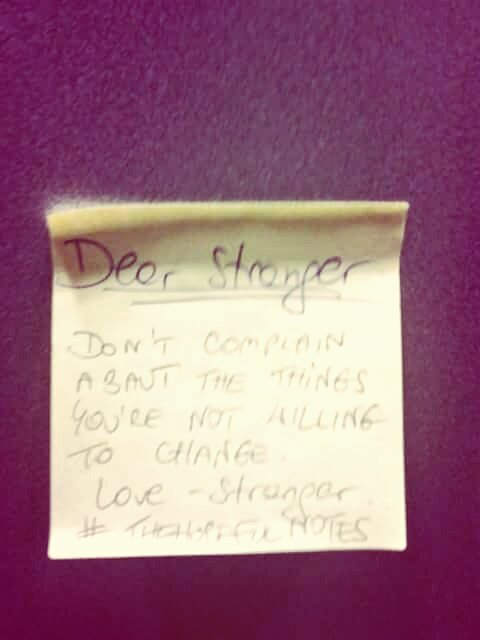 Dear Stranger
DON'T COMPLAIN
ABAUT THE THINGS
YOU'RE NOT WILLING
TO CHANGE.
Love - Stranger.
# THEHOPEFUL NOTES